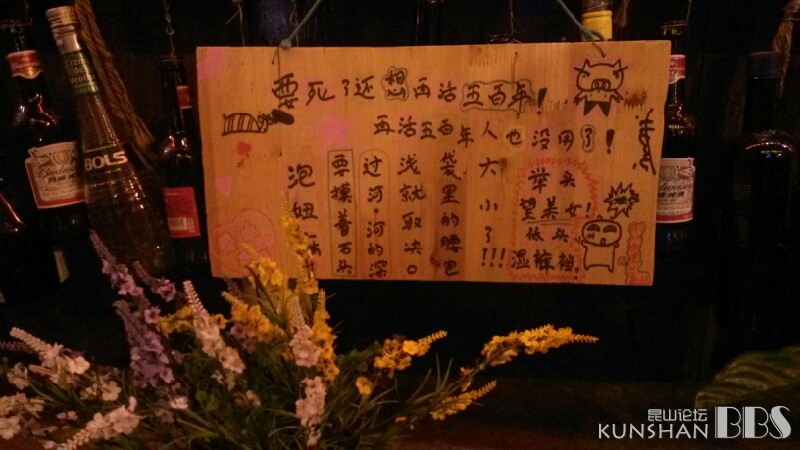 要死了还想再活五百年!
再活五百年人也没用了!
泡妞
要摸着石头
过河,河的深
浅就取决口
袋里的腰包
大小了!!!
举头
望美女!
低头
湿裤裆
BOLS
Budweiser
Budweiser
昆山论坛
KUNSHAN BBS